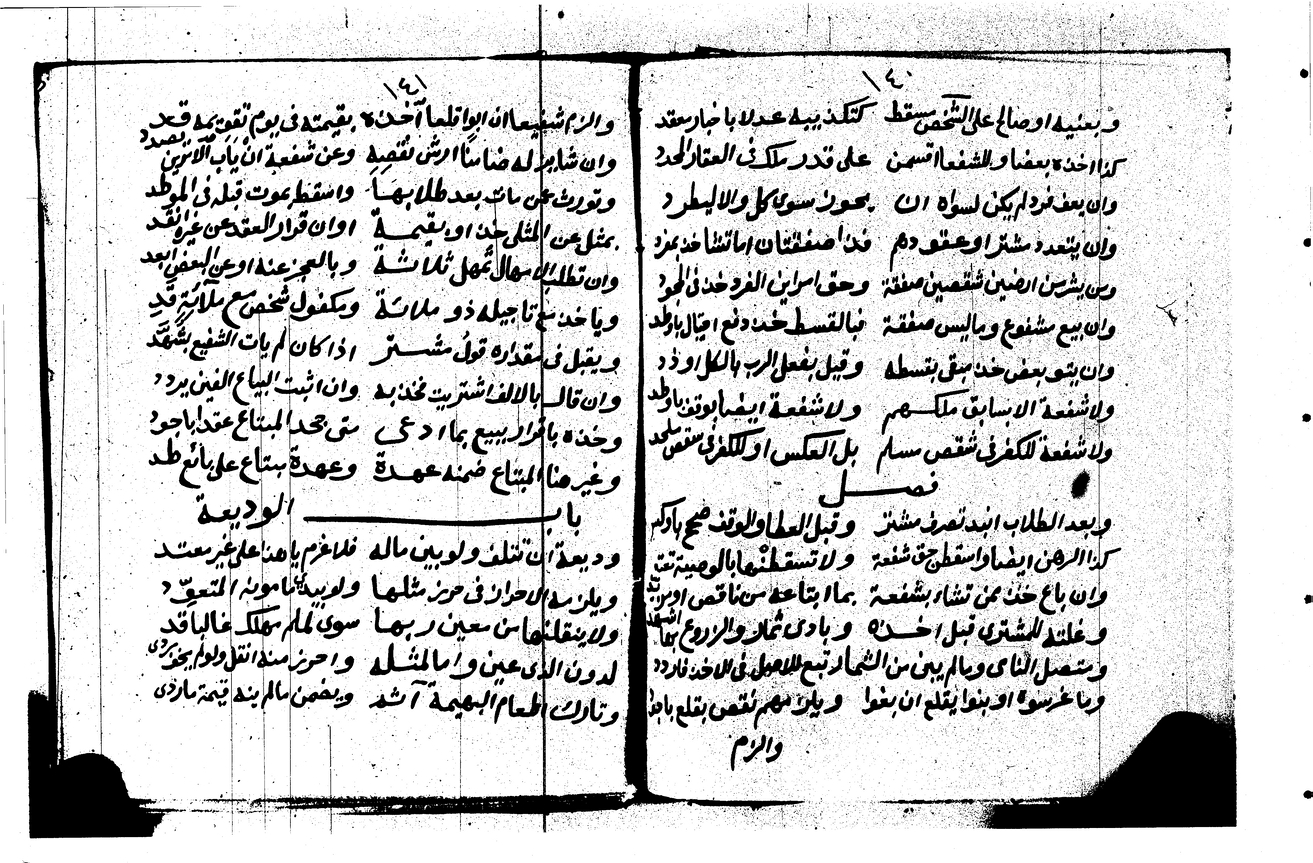 ١٤٠
وبعنيه او صالح على الشخص مسقط كتكذيبه عدلا باخبار معقد
كذا اخذه بعضا وللشفعا اقسمن على قدر ملك في العقار المحدد
وان يعف فرد لم يكن لسواه ان يحوز سوى كل والا ليطرد
وان يتعدد مشتر او عقودهم فذا صفقتان اما تشا خذ بمزد
ومن يشر من ارضين شقصين صفقة وحق امرء ابن الفرد خذ في المجود
وان بيع مشفوع وما ليس صفقة فبالقسط خذ دفع
وان يتو بعض خذ مبقى بقسطه وقيل بفعل الرب بالكل او ذد
ولا شفعة الا بسابق ملكهم ولا شفعة ايضا بوقف باوطد
ولا شفعة للكفر في شقص مسلم بل العكس او للكفر في شقص ملحد
فصل
وبعد الطلاب انبذ تصرف مشتر وقبل العطا والوقف صحح باوكد
كذا الرهن ايضا واسقطن حق شفعة ولا تسقطنها بالوصية تقتد
وان باع خذ ممن تشاء بشفعة بما ابتاعه من ناقص او مزيد
وغلته للمشتري قبل اخذه وبادي ثمار والزروع بها اشهد
ومتصل الناي وما لم يبن من الثمار تبع للاصل في الاخذ فاردد
وما غرسوه او بنوا يقلع ان بغوا ويلزمهم نقص بقلع
والزم
١٤١
والزم شفيعا ان ابوا قلعا آخذه بقيمته في يوم تقويمه قد
وان شا يبز له ضامنا ارش نقصه وعن شفعة ان ياب الامرين يصدد
وتورث عمن مات بعد طلابها واسقط بموت قبله في الموطد
بمثل عن المثلي خذ او بقيمة اوان قرار العقد عن غيره انقد
وان تطلب الامهال تمهل ثلاثة وبالعجز عنه او عن البعض ابعد
وياخذ مع تاجيله ذو ملائة ومكفول شخص مع ملآئه قد
ويقبل في مقداره قول مشتر اذا كان لم يات الشفيع بشهد
وان قال بالالف اشتريت فخذ به وان اثبت البياع الفين يردد
وخذه باقرار ببيع بما ادعى متى جحد المبتاع عقدا باجود
وغير هنا المبتاع ضمنه عهدة وعهدة مبتاع على بائع طد
باب الوديعة
وديعة ان تتلف ولو بين ماله فلا غرم يا هذا على غير معتد
ويلزمه الاحراز في حرز مثلها ولو بيد مامونه المتعود
ولا ينقلنها من معين ربها سوى لملم مهلك غالبا قد
لدون الذي عين واما لمثله واحرز منه انقل ولو لم يجز ردى
وتارك اطعام البهيمة آثم ويضمن ما لم ينه قيمة ما ردى